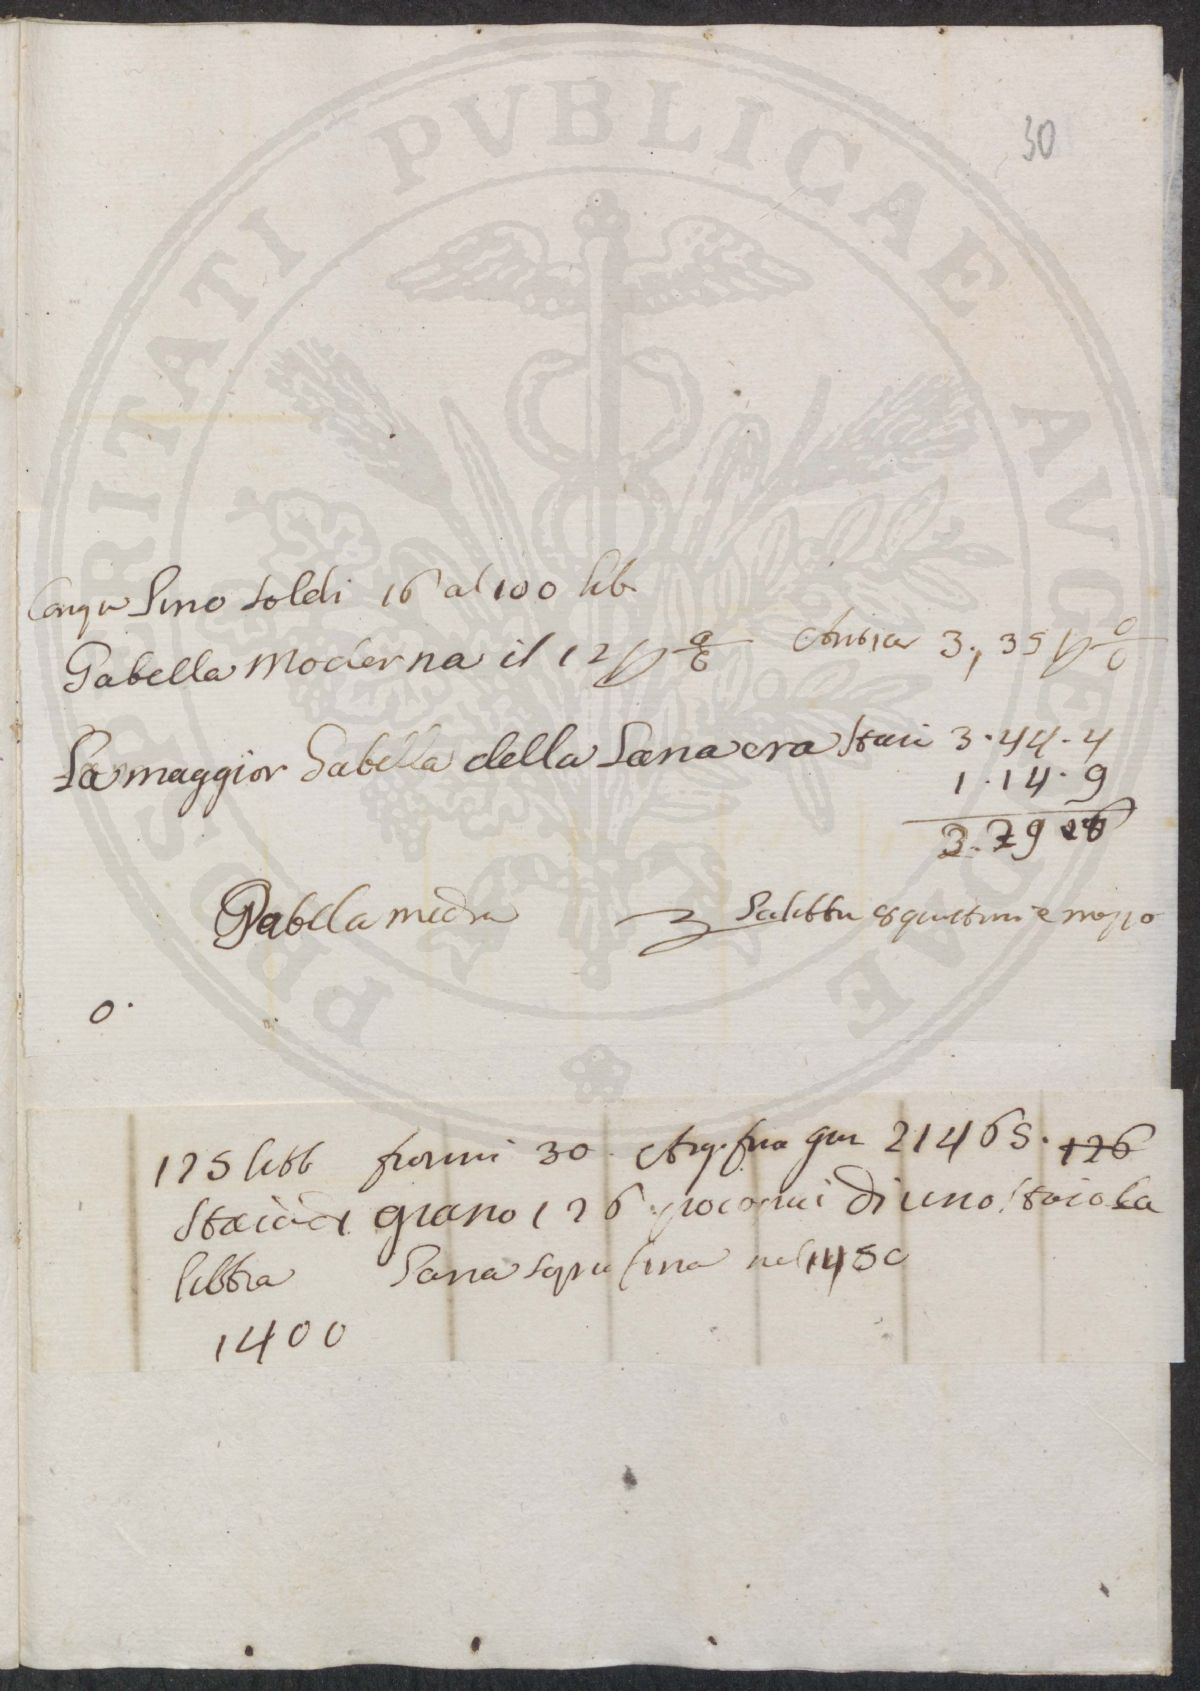 PROSPERITATI PVBLICAE AVGENDAE
30
Lino soldi 16 al 100 lib
Gabella Moderna il 12 p 3, 35 p
La maggior Gabella della Lana era Stari 3.44.4
1.14.9
3.79
Gabella media e mezzo
0.
125 libb fiorini 30 Arg. 21465. 126
Staia di grano 126 di uno Staio la
libbra Lana sopra fina nel 1450
1400